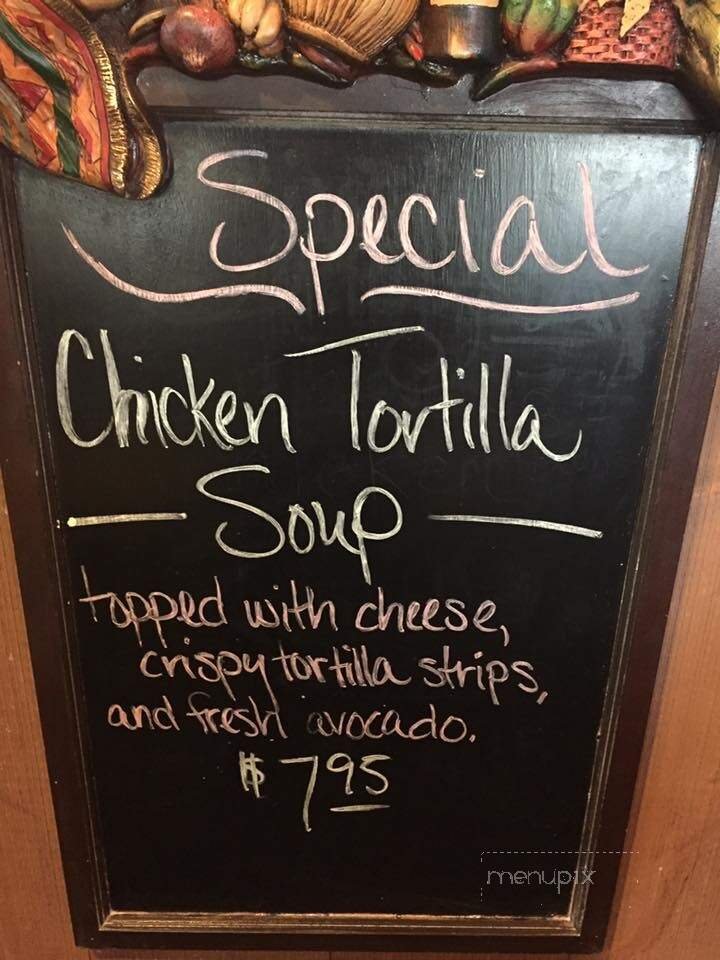 Special
Chicken Tortilla
- Soup -
topped with cheese,
crispy tortilla strips,
and fresh avocado.
$7 95
menupix